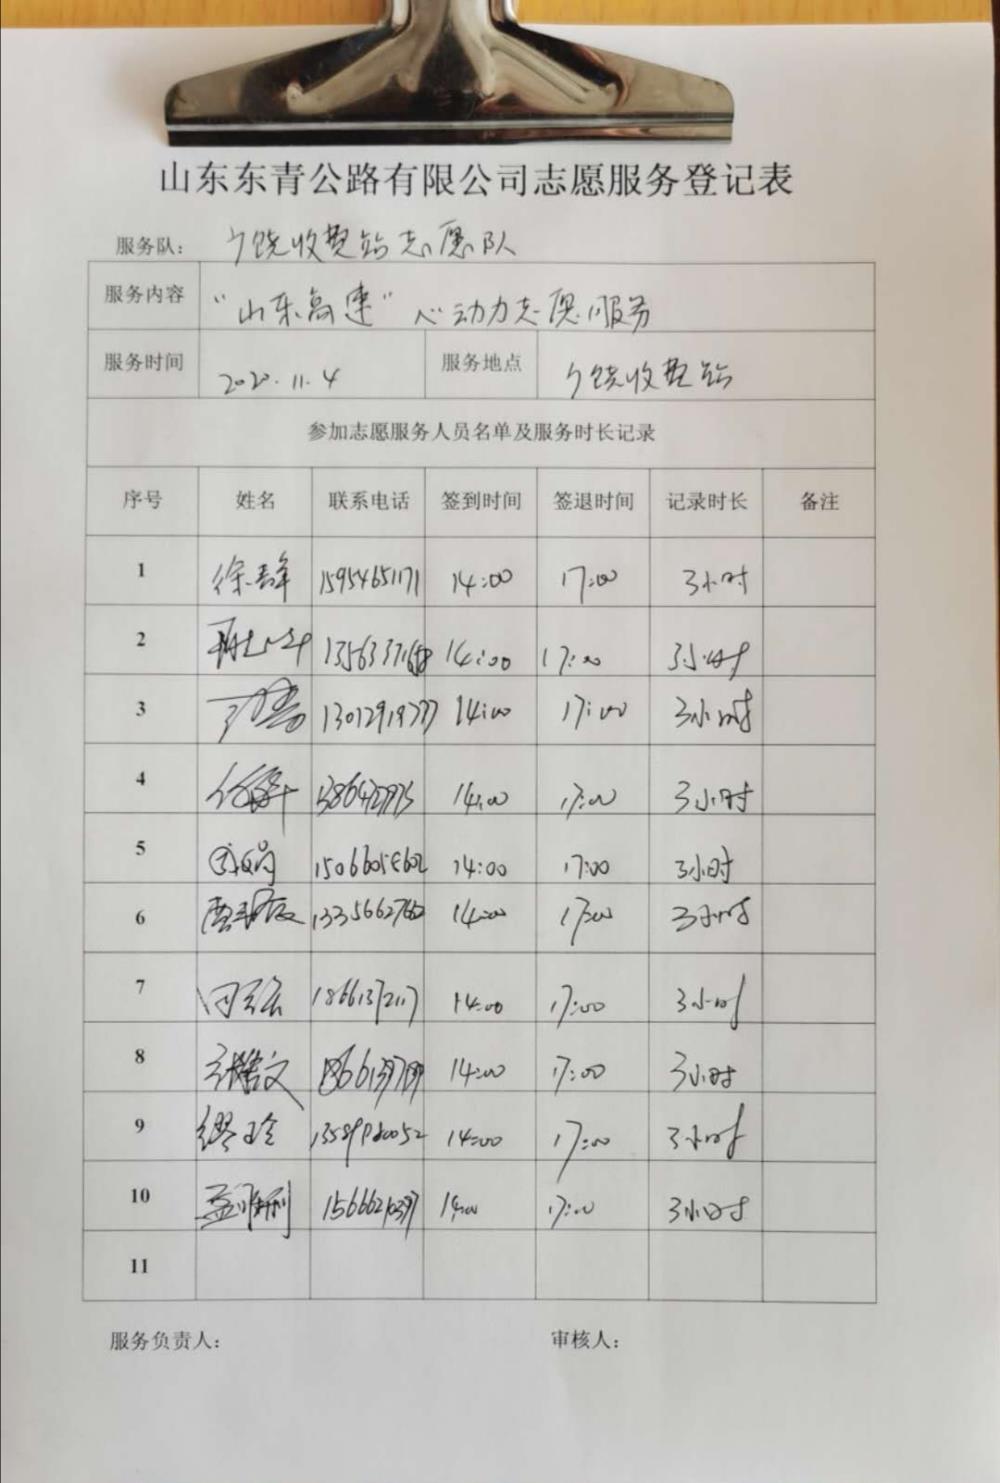 山东东青公路有限公司志愿服务登记表
服务队: 广饶收费站志愿队
服务内容 “山东高速”心动力志愿服务
服务时间 2020.11.4 服务地点 广饶收费站
参加志愿服务人员名单及服务时长记录
序号 姓名 联系电话 签到时间 签退时间 记录时长 备注
1 徐春峰 15954651171 14:00 17:00 3小时
2 14:00 17:00 3小时
3 14:00 17:00 3小时
4 14:00 17:00 3小时
5 14:00 17:00 3小时
6 14:00 17:00 3小时
7 18661372117 14:00 17:00 3小时
8 14:00 17:00 3小时
9 缪玲 14:00 17:00 3小时
10 14:00 17:00 3小时
11
服务负责人: 审核人: